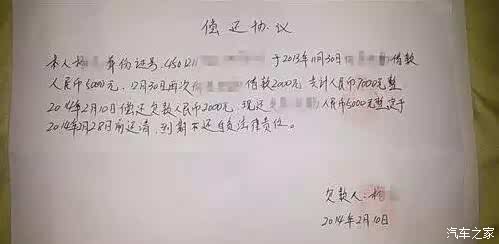 偿还协议
本人 身份证号:450121 于2013年11月30日 借款
人民币5000元,12月30日再次 借款2000元 共计人民币7000元整
2014年2月10日偿还欠款人民币2000元,现还 人民币5000元整定于
2014年2月28日前还清,到期不还自负法律责任。
欠款人:
2014年2月10日
汽车之家